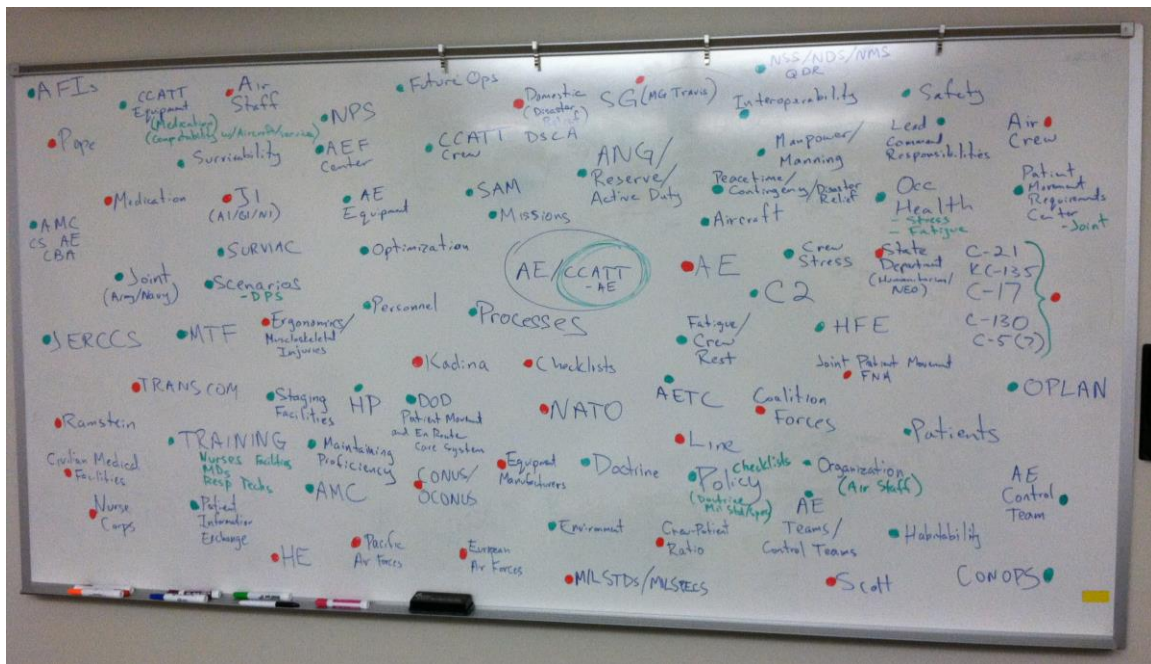 AFIs
CCATT
Equipment
(Medication)
(Compatability w/Aircraft/service)
Air
Staff
NPS
Future Ops
Domestic
(Disaster
DSCA
SG (MG Travis)
NSS/NDS/NMS
QDR
Interoperability
Safety
Pope
Survivability
AEF
Center
CCATT
Crew
ANG/
Reserve/
Active Duty
Manpower/
Manning
Lead
Command
Responsibilities
Air
Crew
Medication
J1
(A1/G1/N1)
AE
Equipment
SAM
Missions
Peacetime/
Contingency/Disaster
Relief
Aircraft
Occ
Health
- Stress
- Fatigue
Patient
Movement
Requirements
Center
- Joint
AMC
CS AE
CBA
SURVIAC
Optimization
AE/CCATT
- AE
AE
Crew
Stress
State
Department
(Humanitarian/
NEO)
C-21
KC-135
C-17
C-130
C-5(?)
Joint
(Army/Navy)
Scenarios
- DPS
Personnel
Processes
C2
JERCCS
MTF
Ergonomics/
Muscloskeletal
Injuries
Kadina
Checklists
Fatigue/
Crew
Rest
HFE
Joint Patient Movement
FNA
TRANSCOM
Staging
Facilities
HP
DOD
Patient Movement
and En Route
Care System
NATO
AETC
Coalition
Forces
OPLAN
Ramstein
TRAINING
Nurses Facilities
MDs
Resp Techs
Maintaining
Proficiency
Line
Patients
Civilian Medical
Facilities
AMC
CONUS/
OCONUS
Equipment
Manufacturers
Doctrine
Policy
Checklists
(Doctrine
Mil Std/Spec)
Organization
(Air Staff)
AE
Control
Team
Nurse
Corps
Patient
Information
Exchange
Environment
Crew-Patient
Ratio
AE
Teams/
Control Teams
Habitability
HE
Pacific
Air Forces
European
Air Forces
MILSTDs/MILSPECS
Scott
CONOPS